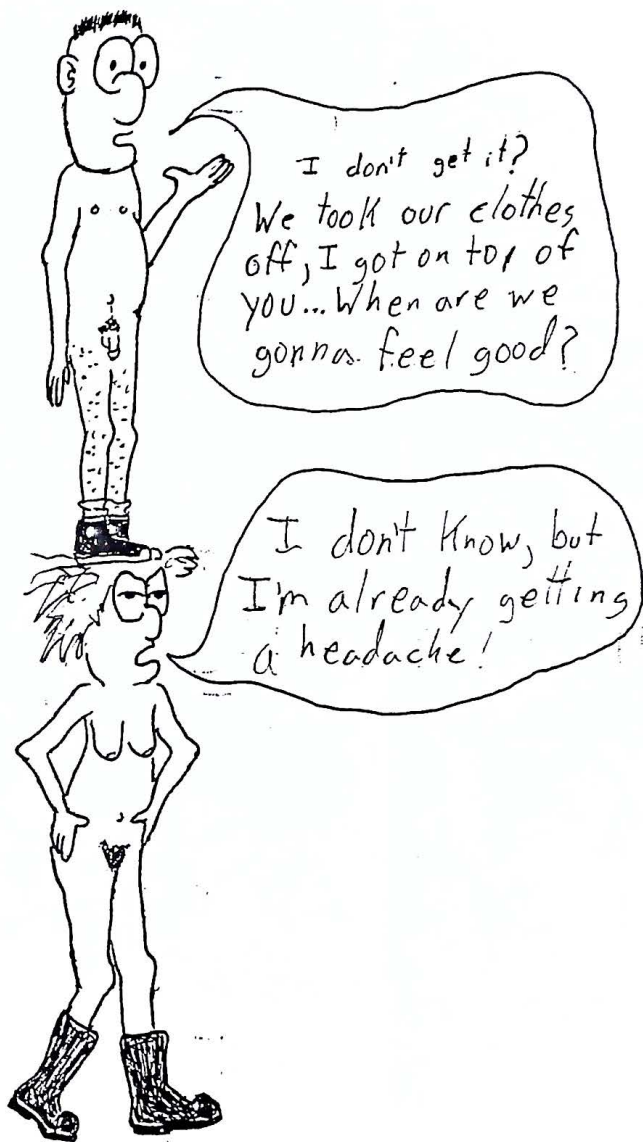 I don't get it?
We took our clothes
off, I got on top of
you... When are we
gonna feel good?
I don't know, but
I'm already getting
a headache!